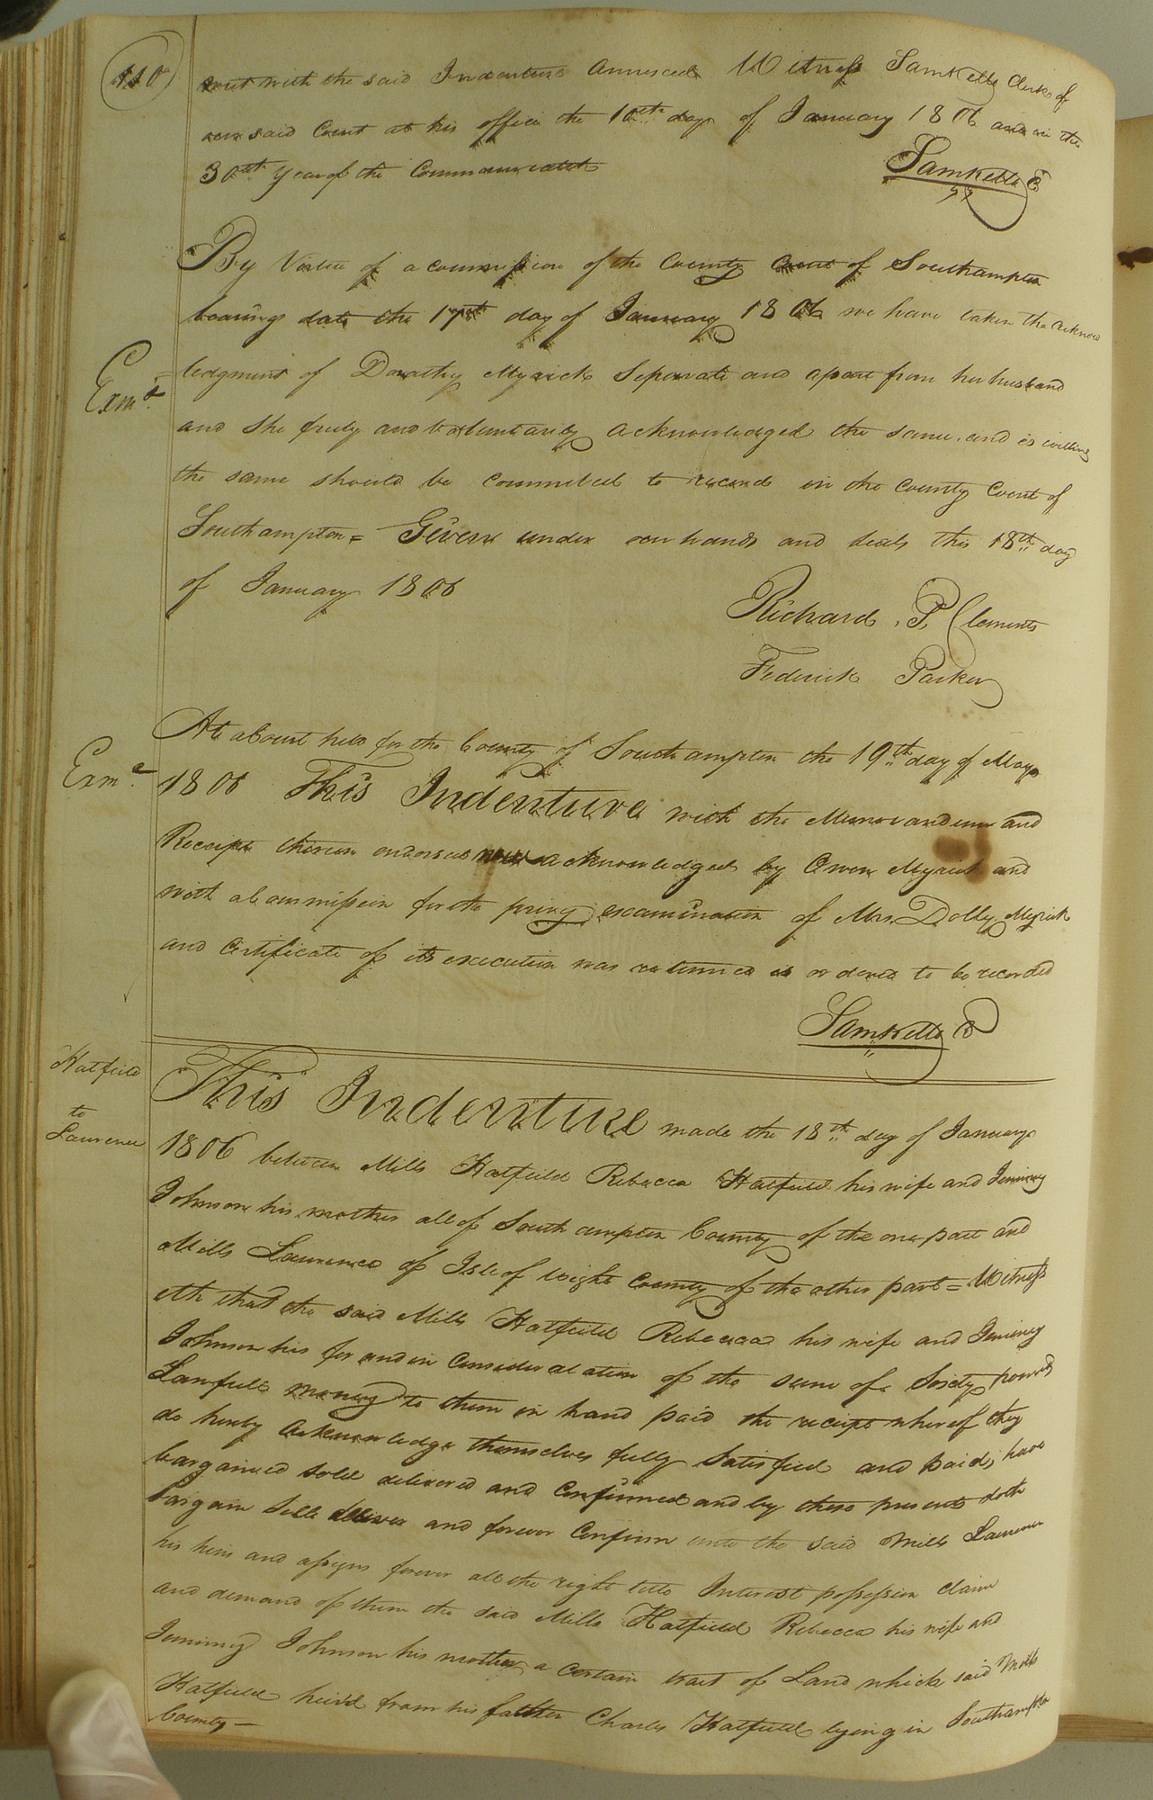 110
ment with the said Indenture Annexed Witness SamKello Clerk of
our said Court at his office the 16th day of January 1806 and in the
30th Year of the Commonwealth
SamKello C
By Virtue of a commission of the County Court of Southampton
bearing date the 17th day of January 1806 we have taken the Acknow
=ledgment of Dorothy Myrick Separate and apart from her husband
Exmd.
and She freely and Voluntarily acknowledged the same. and is willing
the same should be committed to record in the County Court of
Southampton = Given under our hands and seals this 18th day
of January 1806
Richard P. Clements
Federick Parker
At a Court held for the County of Southampton the 19th day of May
Exmd.
1806 This Indenture with the Memorandum and
Receipt thereon endorsed was acknowledged by Owen Myrick and
with a Commission for the privy examination of Mrs. Dolly Myrick
and Certificate of its execution was returned is ordered to be recorded
SamKello C
Hatfield
to
Lawrence
This Indenture made the 18th day of January
1806 between Mills Hatfield Rebecca Hatfield his wife and Jenney
Johnson his mother all of Southampton County of the one part and
Mills Lawrence of Isle of Wight County of the other part = Witness
eth that the said Mills Hatfield Rebecca his wife and Jenney
Johnson his for and in Consideration of the sum of Sixty pounds
Lawfull money to them in hand paid the receipt whereof they
do hereby Acknowledge themselves fully Satisfied and paid, have
bargained sold delivered and Confirmed and by these presents doth
bargain Sell deliver and forever Confirm unto the said Mills Lawrence
his heirs and assigns forever all the right title Interest possession claim
and demand of them the said Mills Hatfield Rebecca his wife and
Jenney Johnson his mother, a Certain tract of Land which said Mills
Hatfield heir'd from his father Charles Hatfield lying in Southampton
County —